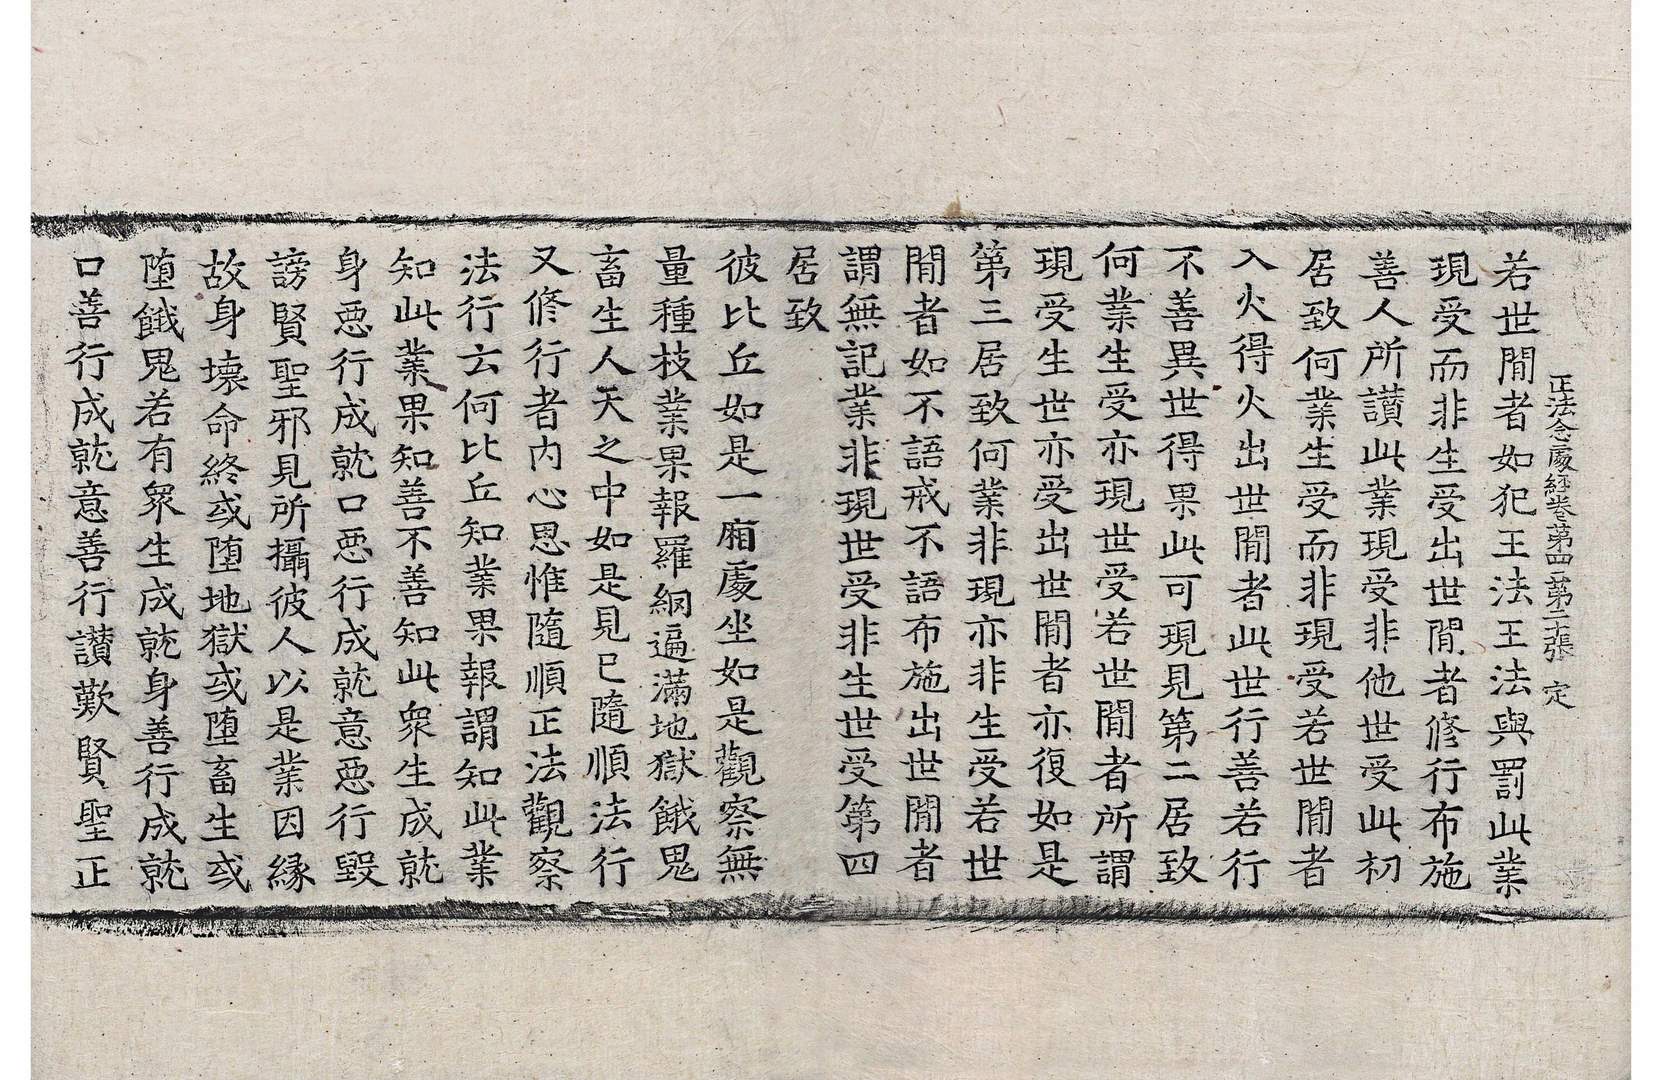 正法念處経卷第四 第二十張 定
若世間者如犯王法王法與罰此業
現受而非生受出世間者修行布施
善人所讃此業現受非他世受此初
居致何業生受而非現受若世間者
入火得火出世間者此世行善若行
不善異世得果此可現見第二居致
何業生受亦現世受若世間者所謂
現受生世亦受出世間者亦復如是
第三居致何業非現亦非生受若世
間者如不語戒不語布施出世間者
謂無記業非現世受非生世受第四
居致
彼比丘如是一廂處坐如是觀察無
量種枝業果報羅網遍滿地獄餓鬼
畜生人天之中如是見已隨順法行
又修行者内心思惟隨順正法觀察
法行云何比丘知業果報謂知此業
知此業果知善不善知此衆生成就
身惡行成就口惡行成就意惡行毀
謗賢聖邪見所攝彼人以是業因縁
故身壞命終或堕地獄或堕畜生或
堕餓鬼若有衆生成就身善行成就
口善行成就意善行讃歎賢聖正